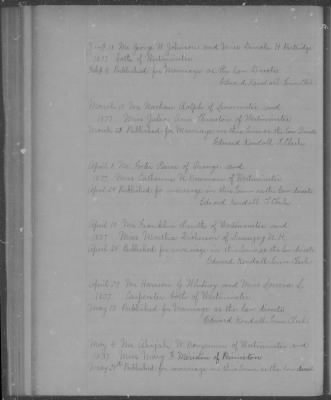 Jan 18 Mr George W Johnson and Miss Dinah H Partridge
1837 both of Westminster
Feb 8 Published for Marriage as the Law Directs
Edward Kendall Town Clerk
March 10 Mr Nathan Ralph of Leominster and
1837. Miss Julia Ann Puaston of Westminster
March 28 Published for Marriage in this Town as the Law Directs
Edward Kendall T. Clerk
April 1 Mr Foster of Orange and
1837 Miss Catharine W Bowman of Westminster
April 24 Published for marriage in this Town as the Law directs
Edward Kendall T Clerk
April 10 Mr Franklin Smith of Westminster and
1837 Miss Martha Dickinson of Swanzey N. H.
April 26 Published for marriage in this Town as the Law directs
Edward Kendall Town Clerk
April 29 Mr Harrison G Whitney and Miss Lovisa L.
1837. Carpenter both of Westminster
May 15 Published for Marriage as the Law directs
Edward Kendall Town Clerk
May 4 Mr Abijah W of Westminster and
1837 Miss Mary F. of Princeton
May 20th Published for marriage in this Town as the Law directs